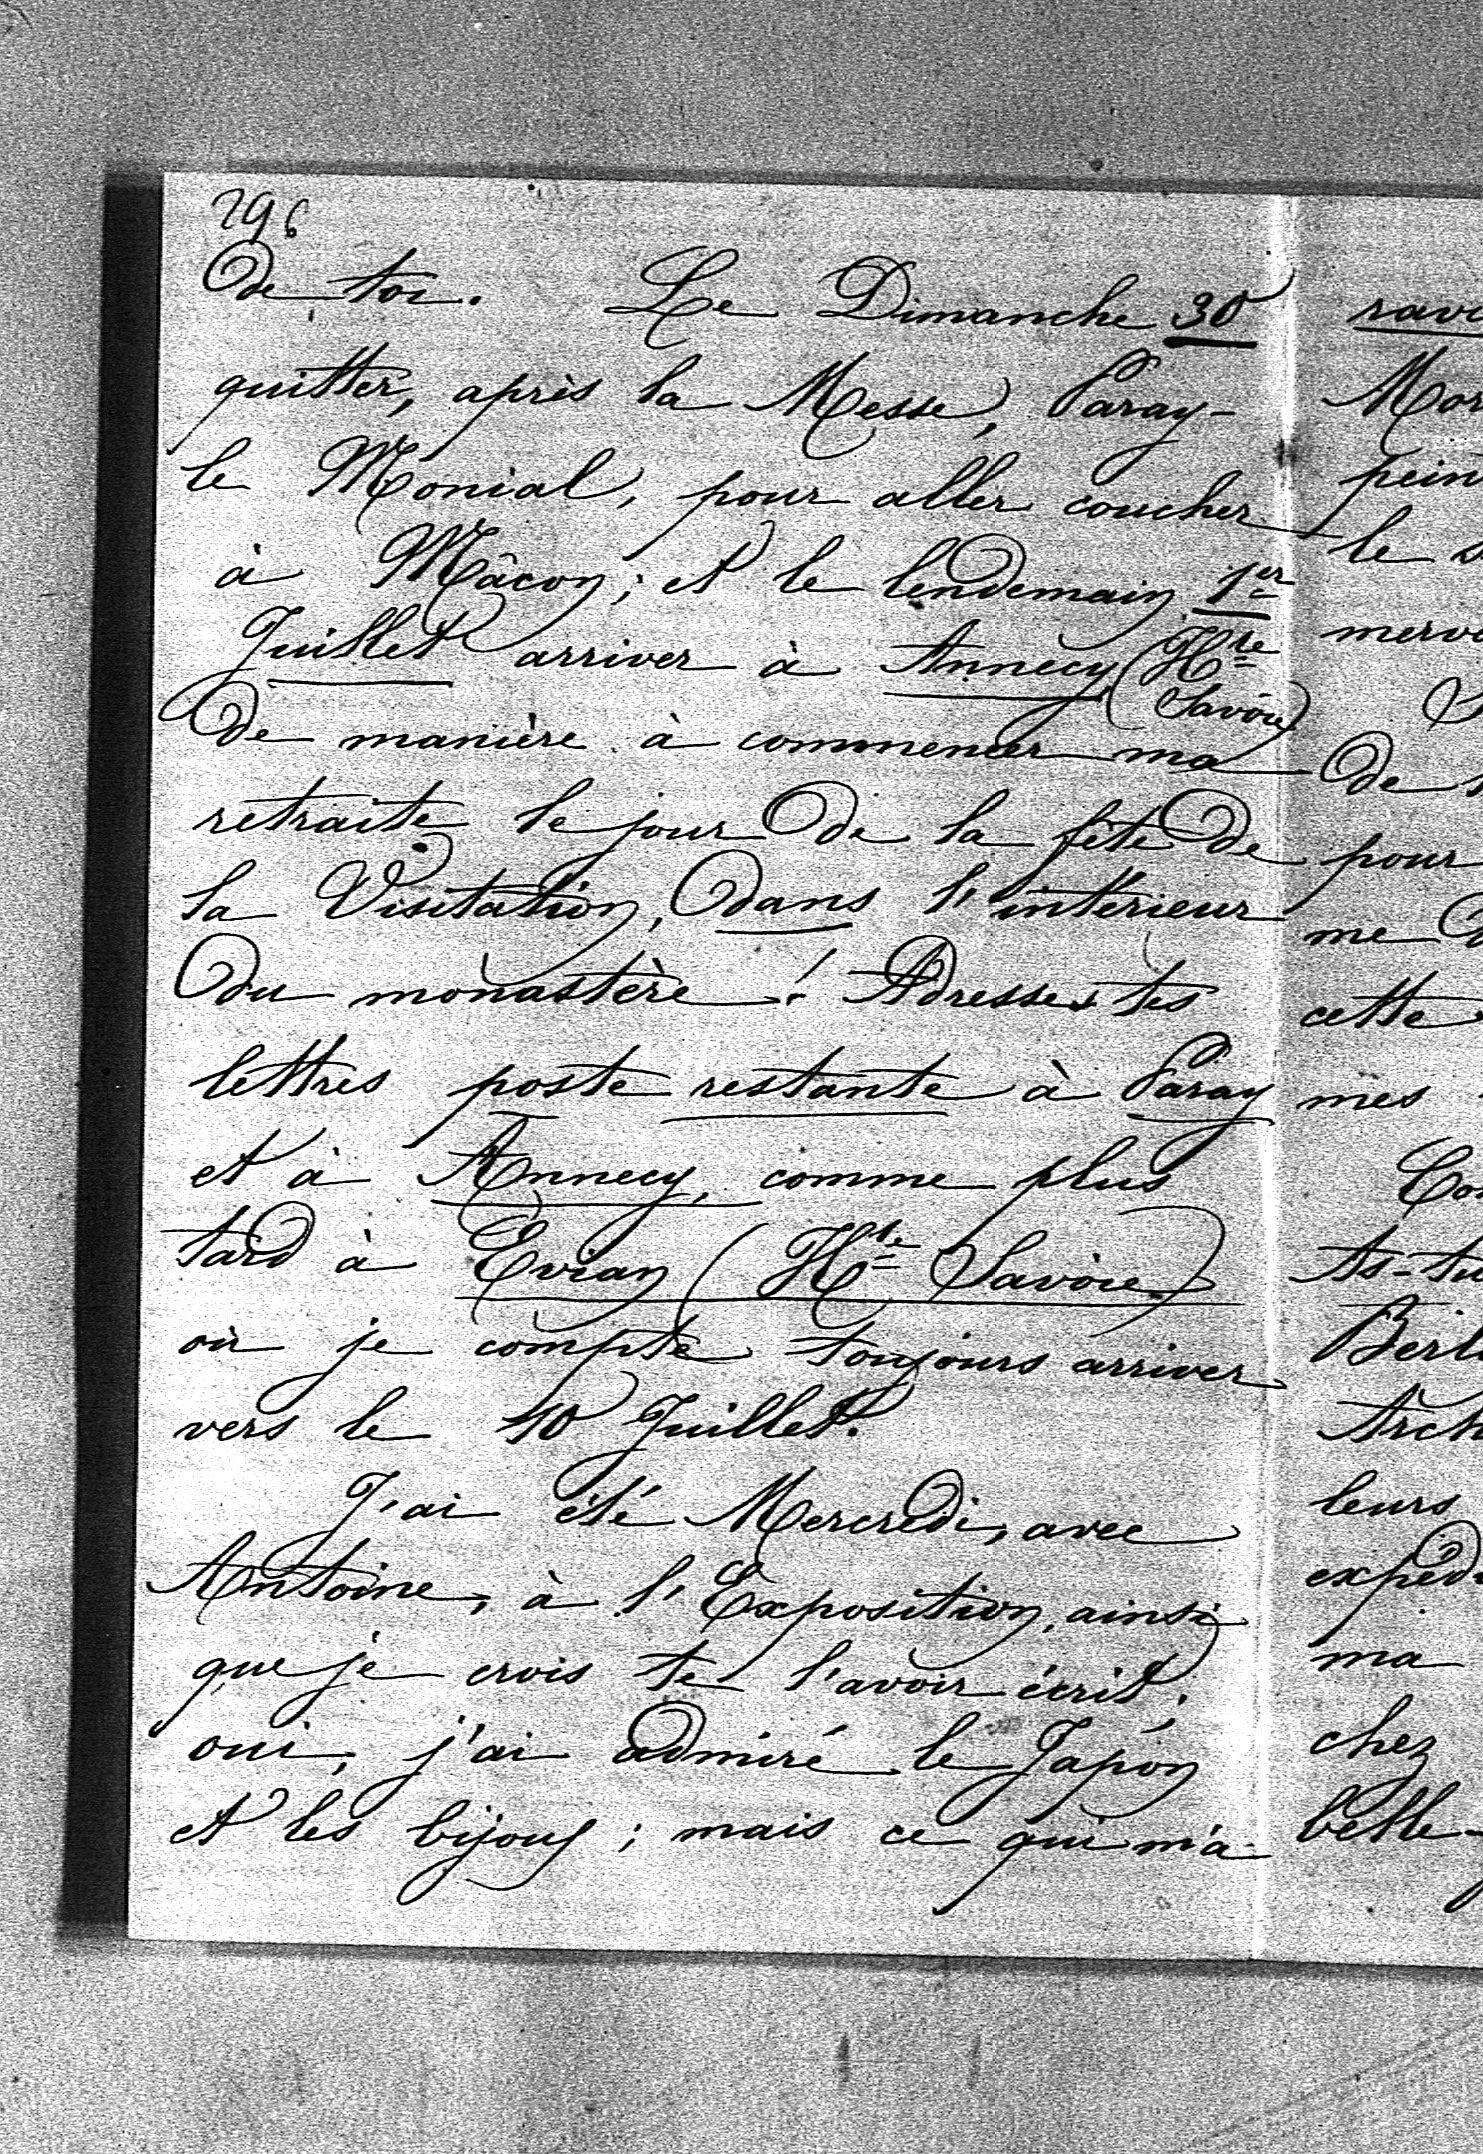 296
de toi. Le Dimanche 30
quitter, après la Messe, Paray-
le Monial, pour aller coucher
à Mâcon; et le lendemain 1er
Juillet arriver à Annecy (Hte
Savoie)
de manière à commencer ma
retraite le jour de la fête de
la Visitation, dans l'intérieur
du monastère! Adresses tes
lettres poste restante à Paray
et à Annecy, comme plus
tard à Evian (Hte Savoie)
où je compte toujours arriver
vers le 10 Juillet.
J'ai été Mercredi, avec
Antoine, à l'Exposition, ainsi
que je crois te l'avoir écrit.
oui, j'ai admiré le Japon
et les bijoux; mais ce qui m'a
Mon
le
de
pour
me
cette
mes
As-tu
leurs
ma
chez
belle-